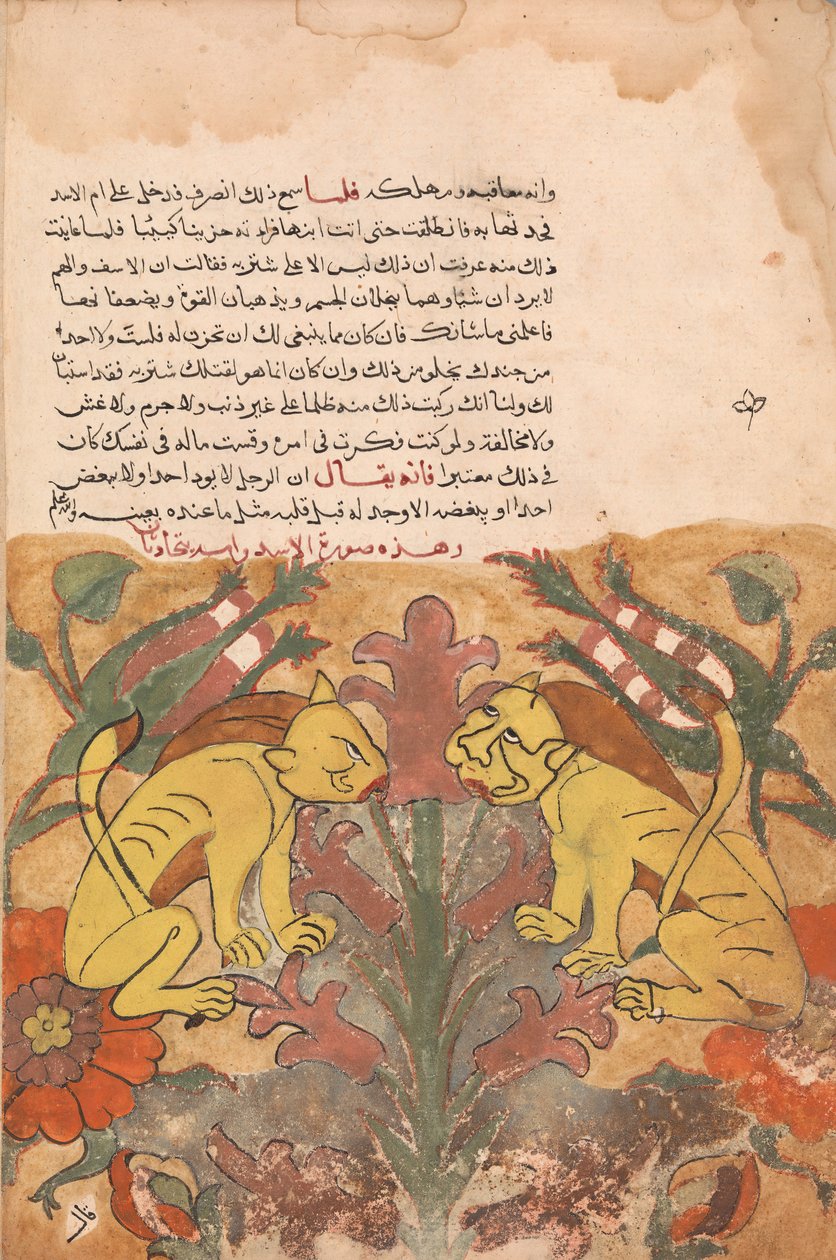 وانه معاقبه ومهلكه فلما سمع ذلك انصرف فدخل على ام الاسد
فحدثها به فانطلقت حتى اتت ابنها فراته حزينا كييبا فلما عاينت
ذلك منه عرفت ان ذلك ليس الا على شتربه فقالت ان الاسف والهم
لا يردان شيا وهما ينحلان الجسم ويذهبان القوة ويضعفانها
فاعلمنى ما شانك فان كان مما ينبغى لك ان تحزن له فلست ولا احدا
من جندك يخلو من ذلك وان كان انما هو لقتلك شتربه فقد استبان
لك ولنا انك ركبت ذلك منه ظلما على غير ذنب ولا جرم ولا غش
ولا مخالفة ولو كنت فكرت فى امره وقست ماله فى نفسك كان
فى ذلك معتبرا فانه يقال ان الرجل لا يود احدا ولا يبغض
احدا او يبغضه الا وجد له قبل قلبه مثل ما عنده بعينه والله اعلم
وهذه صورة الاسد وامه يتحادثان
قال